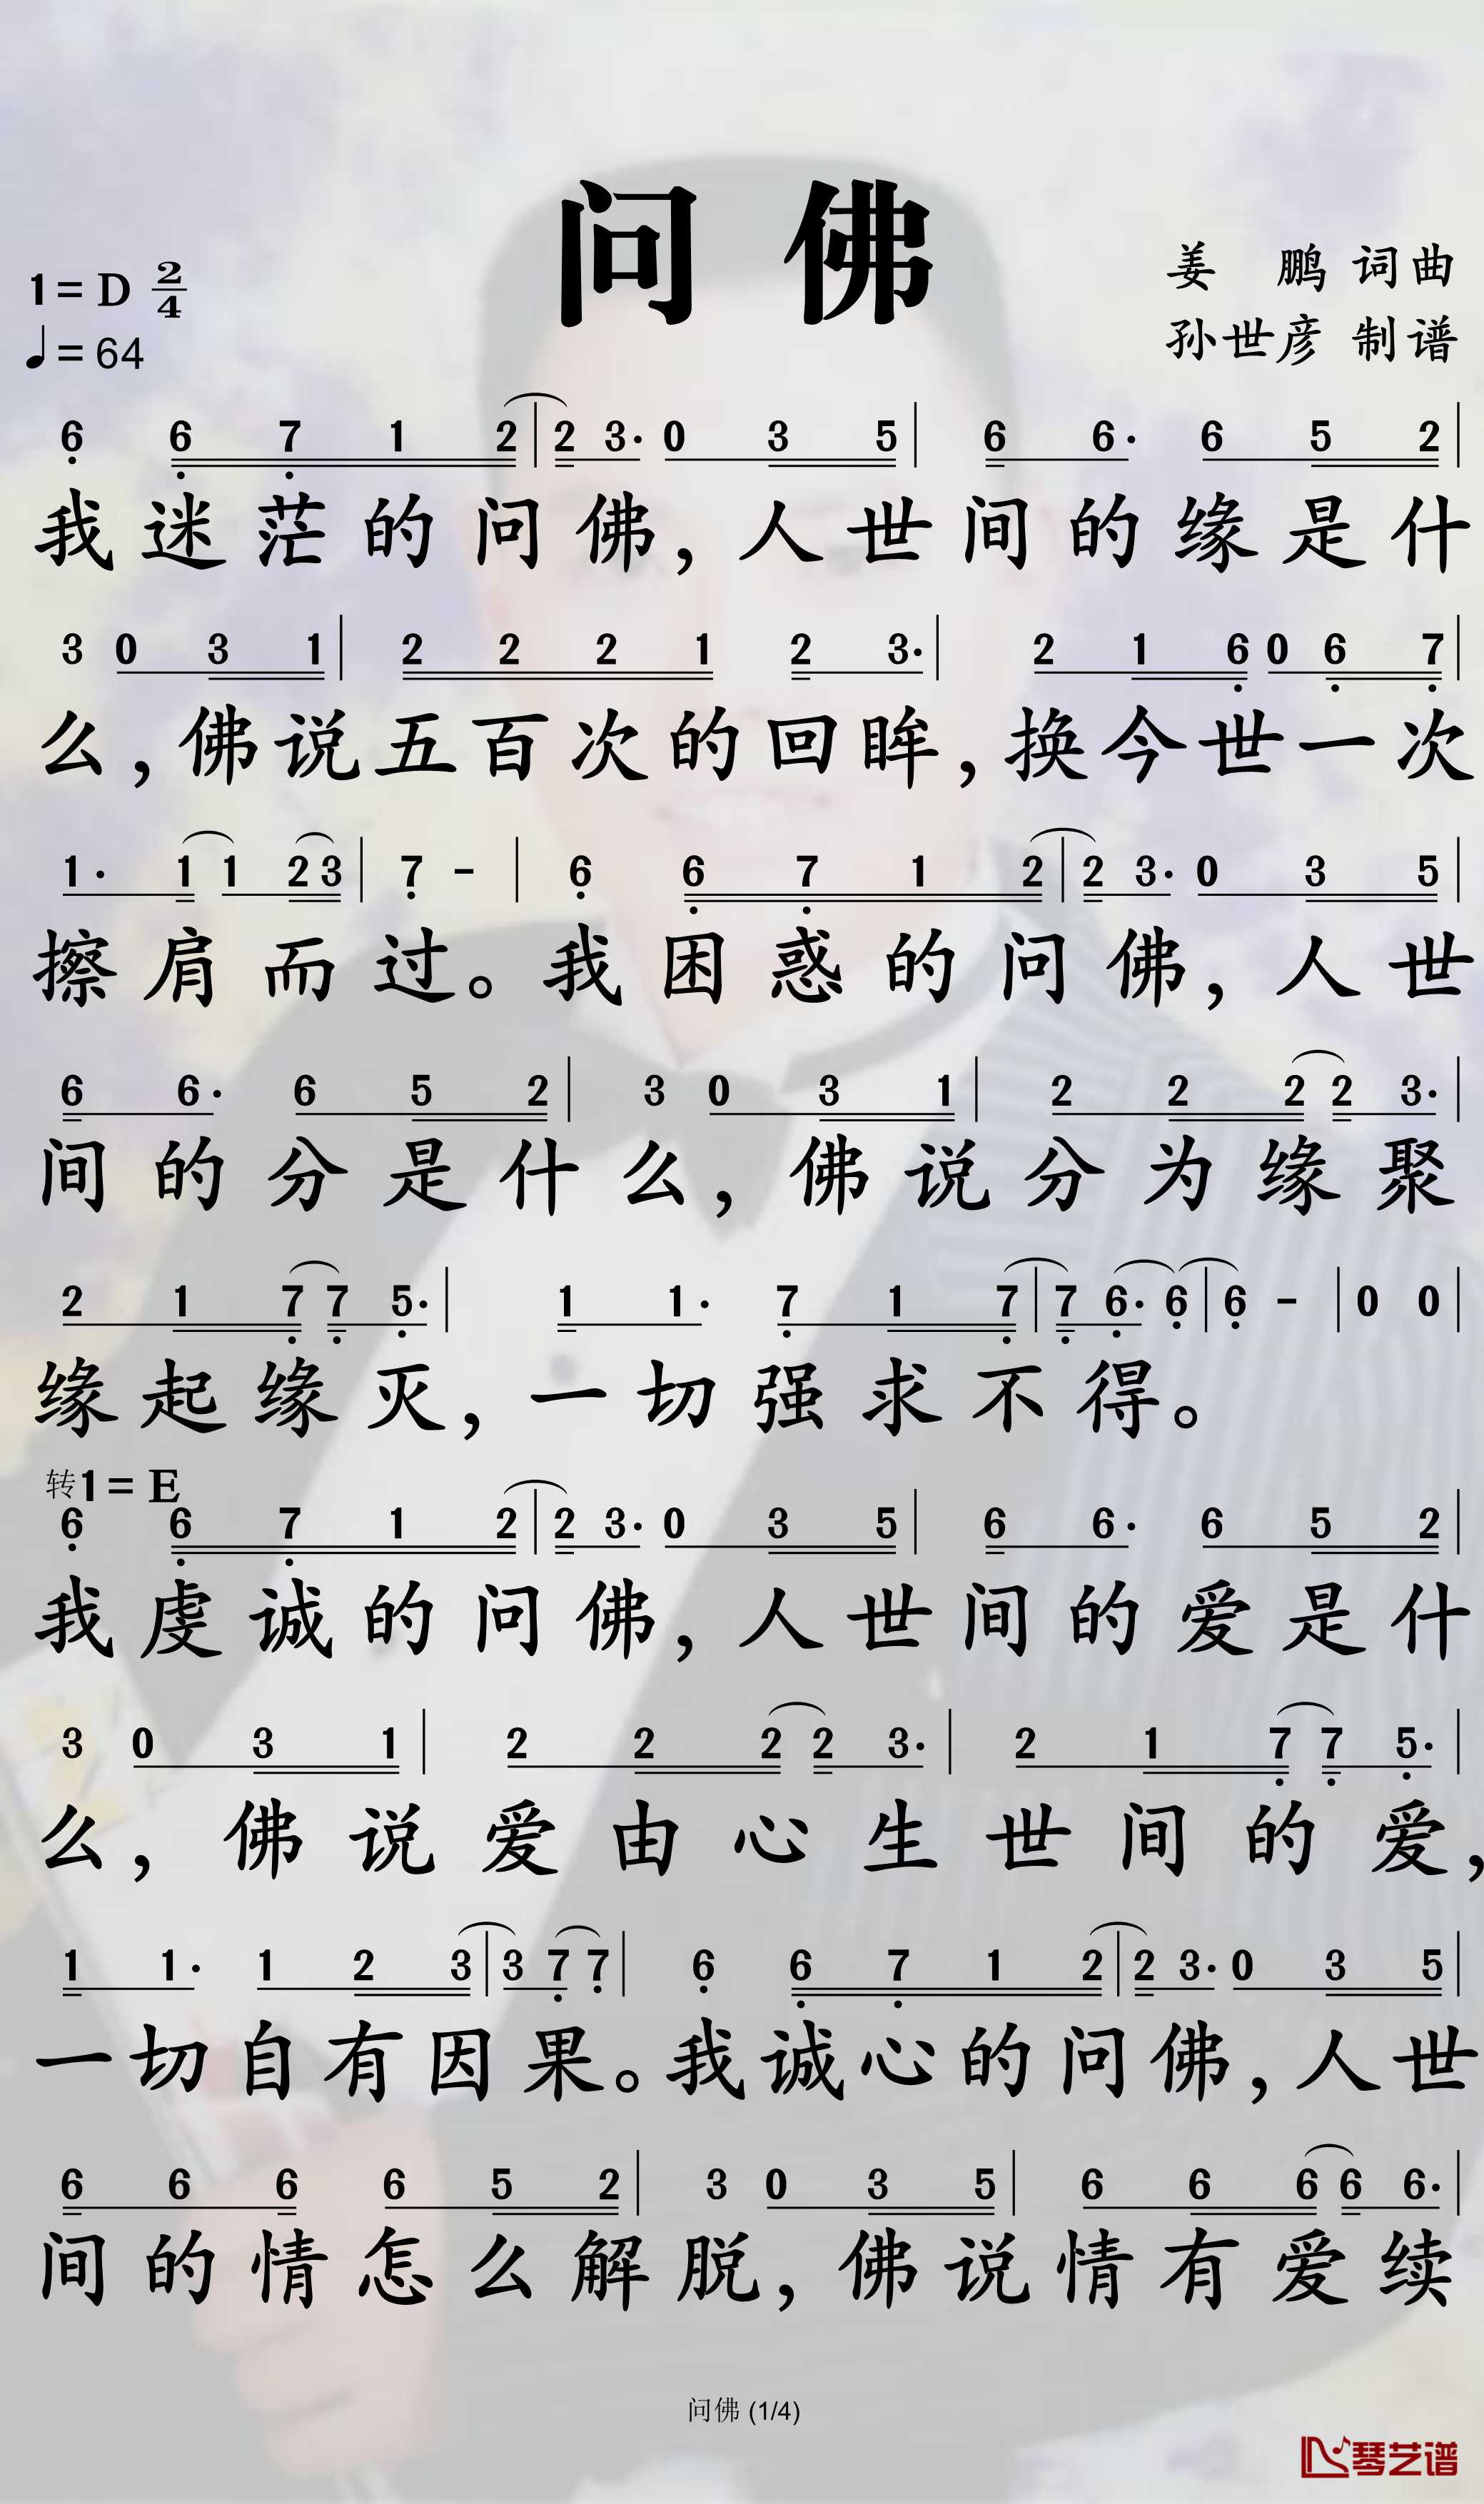 问 佛
1= D 2/4
♩= 64
姜 鹏 词曲
孙世彦 制谱
6 6 7 1 2 | 2 3· 0 3 5 | 6 6· 6 5 2 |
我迷茫的问佛，人世间的缘是什
3 0 3 1 | 2 2 2 1 2 3· | 2 1 6 0 6 7 |
么，佛说五百次的回眸，换今世一次
1· 1 1 2 3 | 7 - | 6 6 7 1 2 | 2 3· 0 3 5 |
擦肩而过。我困惑的问佛，人世
6 6· 6 5 2 | 3 0 3 1 | 2 2 2 2 3· |
间的分是什么，佛说分为缘聚
2 1 7 7 5· | 1 1· 7 1 7 | 7 6· 6 | 6 - | 0 0 |
缘起缘灭，一切强求不得。
转1= E
6 6 7 1 2 | 2 3· 0 3 5 | 6 6· 6 5 2 |
我虔诚的问佛，人世间的爱是什
3 0 3 1 | 2 2 2 2 3· | 2 1 7 7 5· |
么，佛说爱由心生世间的爱，
1 1· 1 2 3 | 3 7 7 | 6 6 7 1 2 | 2 3· 0 3 5 |
一切自有因果。我诚心的问佛，人世
6 6 6 6 5 2 | 3 0 3 5 | 6 6 6 6 6· |
间的情怎么解脱，佛说情有爱续
问佛 (1/4)
琴艺谱